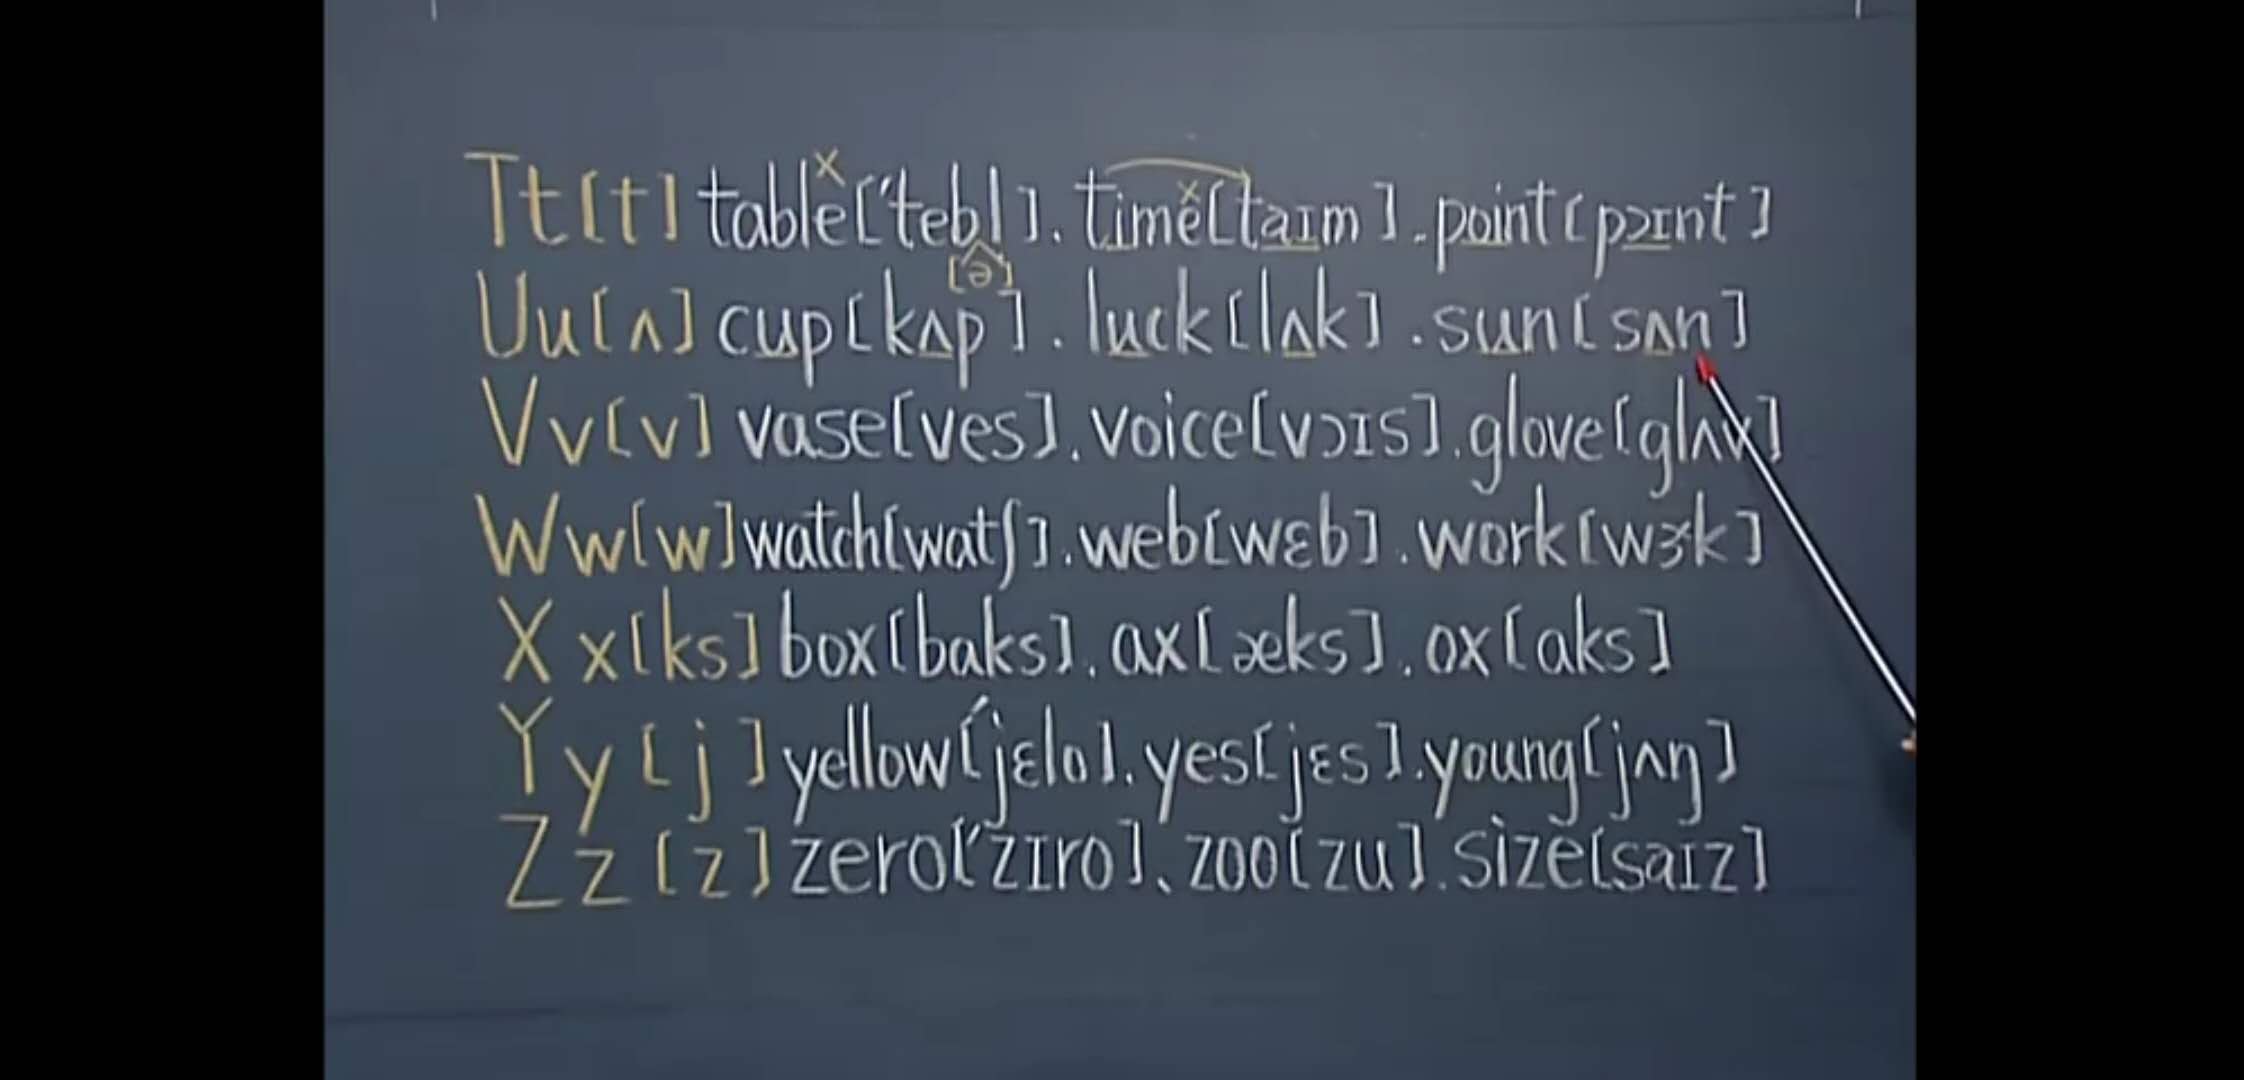 Tt[t] table['tebl]. time[taɪm]. point[pɔɪnt]
[ə]
Uu[ʌ] cup[kʌp]. luck[lʌk]. sun[sʌn]
Vv[v] vase[ves]. voice[vɔɪs]. glove[glʌv]
Ww[w] watch[watʃ]. web[wɛb]. work[wɝk]
Xx[ks] box[baks]. ax[æks]. ox[aks]
Yy[j] yellow['jɛlo]. yes[jɛs]. young[jʌŋ]
Zz[z] zero['zɪro]. zoo[zu]. size[saɪz]